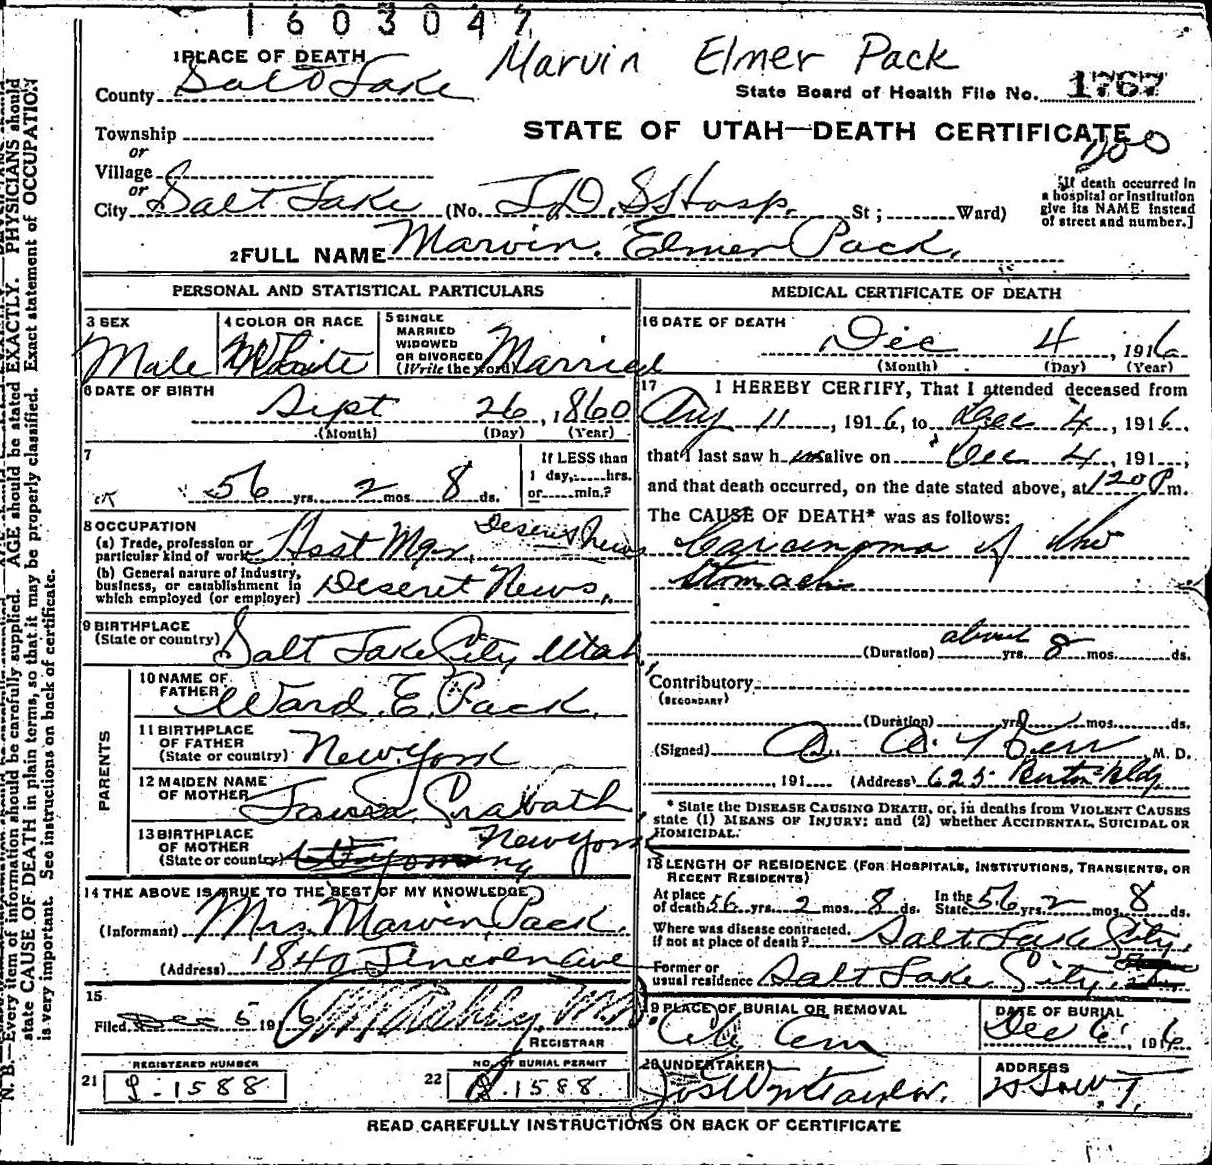 1603047
Marvin Elmer Pack
1 PLACE OF DEATH
County Salt Lake
State Board of Health File No. 1767
Township
or
STATE OF UTAH—DEATH CERTIFICATE
Village
or
City Salt Lake (No. L.D.S Hosp. St; Ward)
[If death occurred in
a hospital or institution
give its NAME instead
of street and number.]
2 FULL NAME Marvin. Elmer Pack.
PERSONAL AND STATISTICAL PARTICULARS
3 SEX Male
4 COLOR OR RACE White
5 SINGLE
MARRIED
WIDOWED
OR DIVORCED
(Write the word) Married
6 DATE OF BIRTH
Sept 26, 1860
(Month) (Day) (Year)
7
56 yrs. 2 mos. 8 ds.
If LESS than
1 day, hrs.
or min.?
8 OCCUPATION
(a) Trade, profession or
particular kind of work Asst Mgr. Deseret News
(b) General nature of industry,
business, or establishment in
which employed (or employer) Deseret News,
9 BIRTHPLACE
(State or country) Salt Lake City Utah
PARENTS
10 NAME OF
FATHER Ward. E. Pack.
11 BIRTHPLACE
OF FATHER
(State or country) New York
12 MAIDEN NAME
OF MOTHER
13 BIRTHPLACE
OF MOTHER
(State or country) New York
14 THE ABOVE IS TRUE TO THE BEST OF MY KNOWLEDGE
(Informant) Mrs. Marvin Pack.
(Address) 1840 Lincoln Ave
15
Filed Dec 5 1916
REGISTRAR
REGISTERED NUMBER
21 1588
NO. OF BURIAL PERMIT
22 1588
MEDICAL CERTIFICATE OF DEATH
16 DATE OF DEATH
Dec 4, 1916
(Month) (Day) (Year)
17 I HEREBY CERTIFY, That I attended deceased from
Aug 11, 1916, to Dec 4, 1916,
that I last saw him alive on Dec 4, 191 ;
and that death occurred, on the date stated above, at 120 P m.
The CAUSE OF DEATH* was as follows:
Carcinoma of the
Stomach
(Duration) about yrs. 8 mos. ds.
Contributory
(SECONDARY)
(Duration) yrs. mos. ds.
(Signed) M. D.
191 (Address) 625 Bldg
* State the DISEASE CAUSING DEATH, or, in deaths from VIOLENT CAUSES
state (1) MEANS OF INJURY; and (2) whether ACCIDENTAL, SUICIDAL OR
HOMICIDAL.
18 LENGTH OF RESIDENCE (FOR HOSPITALS, INSTITUTIONS, TRANSIENTS, OR
RECENT RESIDENTS)
At place
of death 56 yrs. 2 mos. 8 ds.
In the
State 56 yrs. 2 mos. 8 ds.
Where was disease contracted.
if not at place of death? Salt Lake City.
Former or
usual residence Salt Lake City.
19 PLACE OF BURIAL OR REMOVAL
City Cem
DATE OF BURIAL
Dec 6, 1916
20 UNDERTAKER
Jos Wm Taylor.
ADDRESS
READ CAREFULLY INSTRUCTIONS ON BACK OF CERTIFICATE
N. B.—Every item of information should be carefully supplied. AGE should be stated EXACTLY. PHYSICIANS should
state CAUSE OF DEATH in plain terms, so that it may be properly classified. Exact statement of OCCUPATION
is very important. See instructions on back of certificate.